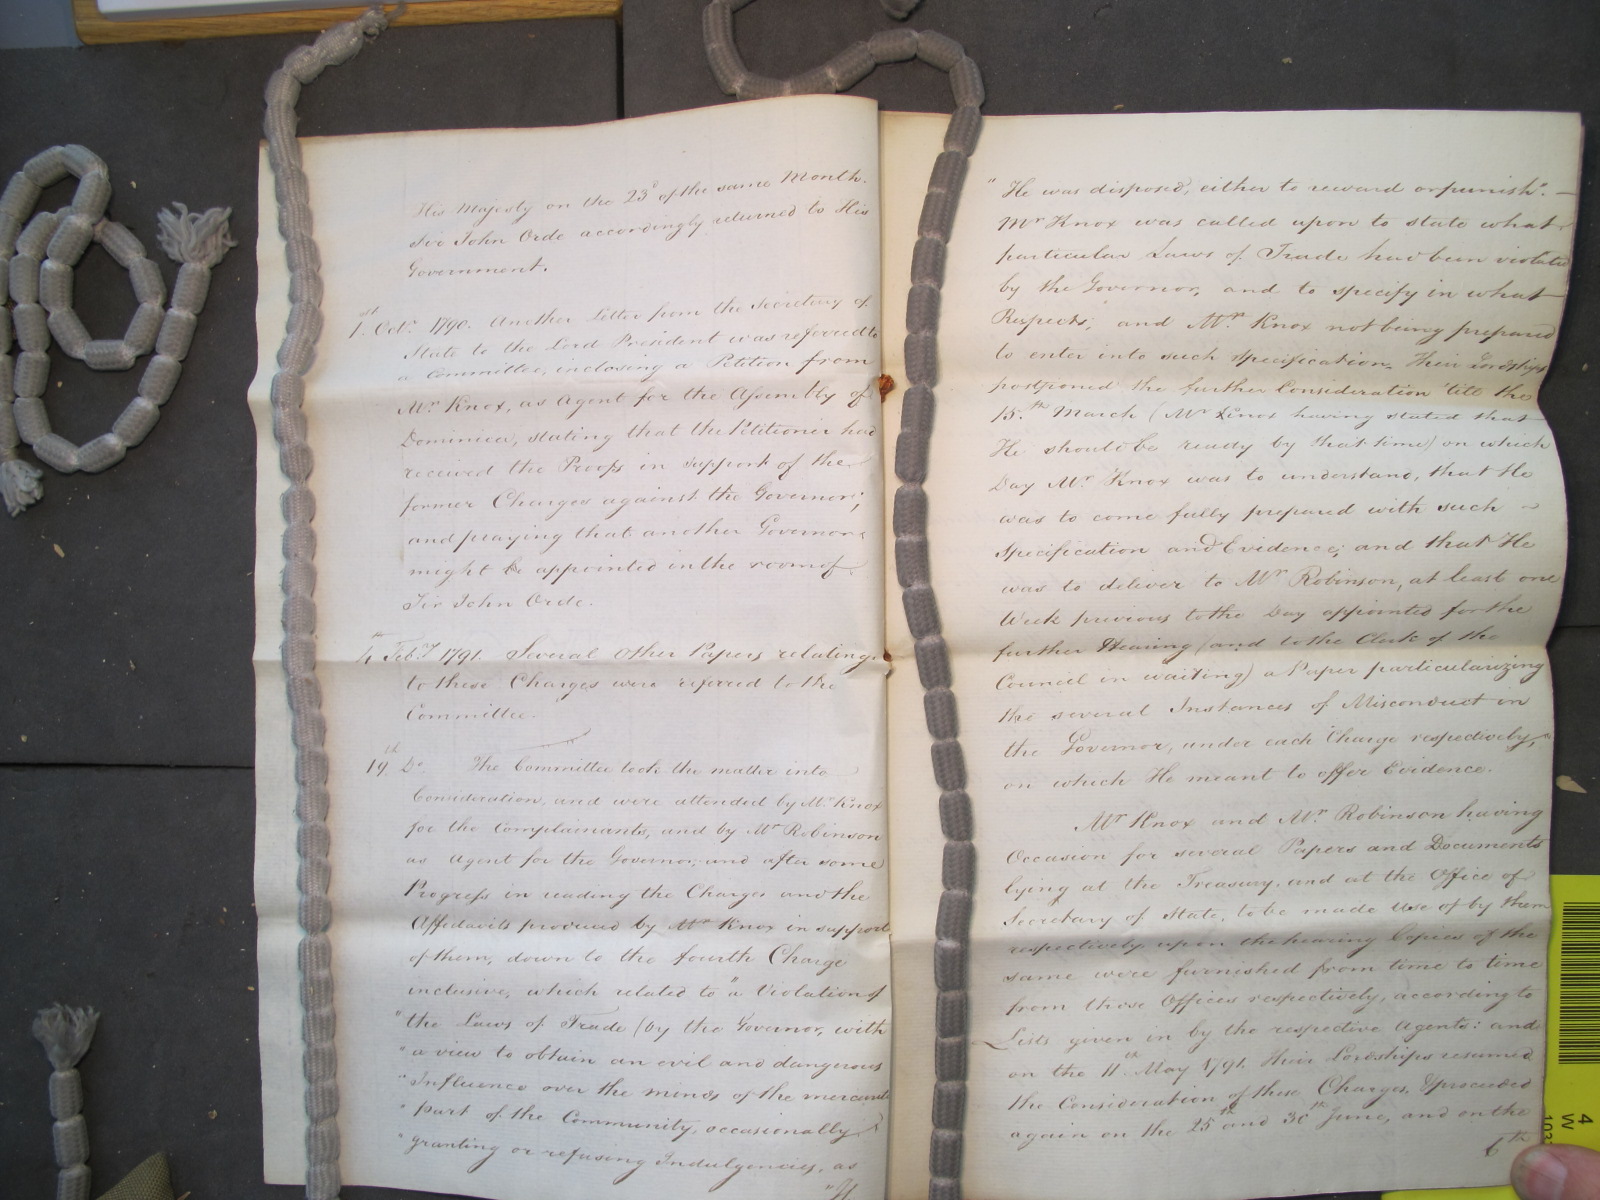 His Majesty on the 23d of the same Month.
Sir John Orde accordingly returned to His
Government.
1st Octr. 1790. Another Letter from the Secretary of
State to the Lord President was referred to
a Committee, inclosing a Petition from
Mr. Knox, as Agent for the Assembly of
Dominica, stating that the Petitioner had
received the Proofs in support of the
former Charges against the Governor;
and praying that another Governor
might be appointed in the room of
Sir John Orde.
Feb.y 1791. Several other Papers relating
to these Charges were referred to the
Committee.
19th Do. The Committee took the matter into
Consideration, and were attended by Mr. Knox
for the Complainants, and by Mr. Robinson
as Agent for the Governor, and after some
Progress in reading the Charges and the
Affidavits produced by Mr. Knox in support
of them, down to the fourth Charge
inclusive, which related to "a Violation of
"the Laws of Trade (by the Governor, with
"a view to obtain an evil and dangerous
"Influence over the minds of the mercantile
"part of the Community, occasionally
"granting or refusing Indulgencies, as
"He was disposed, either to reward or punish". —
Mr. Knox was called upon to state what
particular Laws of Trade had been violated
by the Governor, and to specify in what
Respects; and Mr. Knox not being prepared
to enter into such specification, Their Lordships
postponed the further Consideration 'till the
15th March (Mr. Knox having stated that
He should be ready by that time) on which
Day Mr. Knox was to understand, that He
was to come fully prepared with such
Specification and Evidence; and that He
was to deliver to Mr. Robinson, at least one
Week previous to the Day appointed for the
further Hearing (and to the Clerk of the
Council in waiting) a Paper particularizing
the several Instances of Misconduct in
the Governor, under each Charge respectively,
on which He meant to offer Evidence.
Mr. Knox and Mr. Robinson having
Occasion for several Papers and Documents
lying at the Treasury, and at the Office of
Secretary of State, to be made use of by them
respectively, upon the hearing Copies of the
same were furnished from time to time
from those Offices respectively, according to
Lists given in by the respective Agents: and
on the 11th. May 1791. Their Lordships resumed
the Consideration of these Charges, & proceeded
again on the 25th and 30th June, and on the
6th